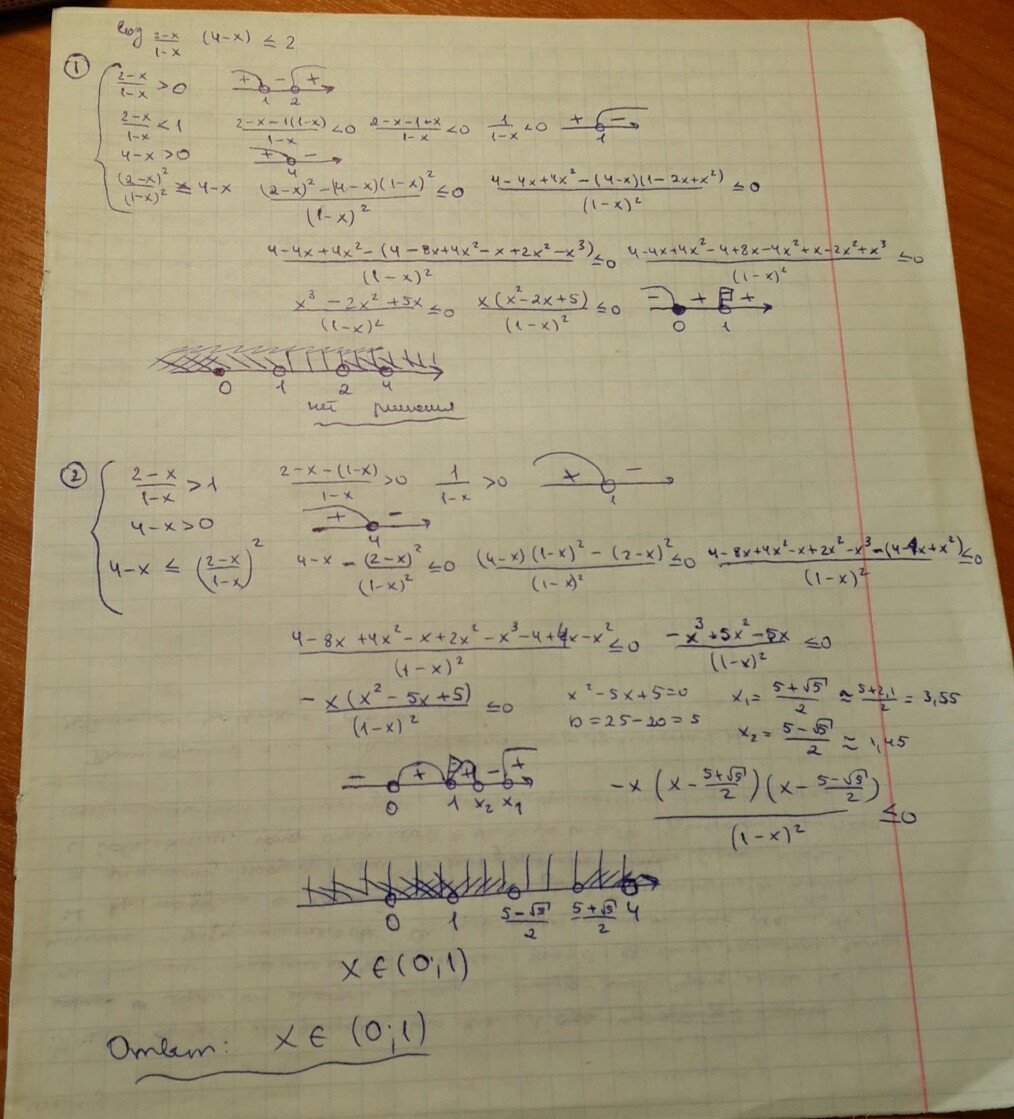 log_{\frac{2-x}{1-x}} (4-x) ≤ 2
① \frac{2-x}{1-x} > 0 + 1 - 2 +
\frac{2-x}{1-x} < 1 \frac{2-x-1(1-x)}{1-x} < 0 \frac{2-x-1+x}{1-x} < 0 \frac{1}{1-x} < 0 + 1 -
4-x > 0 + 4 -
\frac{(2-x)^2}{(1-x)^2} ≤ 4-x \frac{(2-x)^2-(4-x)(1-x)^2}{(1-x)^2} ≤ 0 \frac{4-4x+4x^2-(4-x)(1-2x+x^2)}{(1-x)^2} ≤ 0
\frac{4-4x+4x^2-(4-8x+4x^2-x+2x^2-x^3)}{(1-x)^2} ≤ 0 \frac{4-4x+4x^2-4+8x-4x^2+x-2x^2+x^3}{(1-x)^2} ≤ 0
\frac{x^3-2x^2+5x}{(1-x)^2} ≤ 0 \frac{x(x^2-2x+5)}{(1-x)^2} ≤ 0 - 0 + 1 +
0 1 2 4
нет решения
② \frac{2-x}{1-x} > 1 \frac{2-x-(1-x)}{1-x} > 0 \frac{1}{1-x} > 0 + 1 -
4-x > 0 + 4 -
4-x ≤ (\frac{2-x}{1-x})^2 4-x - \frac{(2-x)^2}{(1-x)^2} ≤ 0 \frac{(4-x)(1-x)^2-(2-x)^2}{(1-x)^2} ≤ 0 \frac{4-8x+4x^2-x+2x^2-x^3-(4-4x+x^2)}{(1-x)^2} ≤ 0
\frac{4-8x+4x^2-x+2x^2-x^3-4+4x-x^2}{(1-x)^2} ≤ 0 \frac{-x^3+5x^2-5x}{(1-x)^2} ≤ 0
-\frac{x(x^2-5x+5)}{(1-x)^2} ≤ 0 x^2-5x+5=0 x_1 = \frac{5+√5}{2} ≈ \frac{5+2,1}{2} = 3,55
D=25-20=5 x_2 = \frac{5-√5}{2} ≈ 1,45
- 0 + 1 + x_2 - x_1 + \frac{-x(x-\frac{5+√5}{2})(x-\frac{5-√5}{2})}{(1-x)^2} ≤ 0
0 1 \frac{5-√5}{2} \frac{5+√5}{2} 4
x ∈ (0;1)
Ответ: x ∈ (0;1)